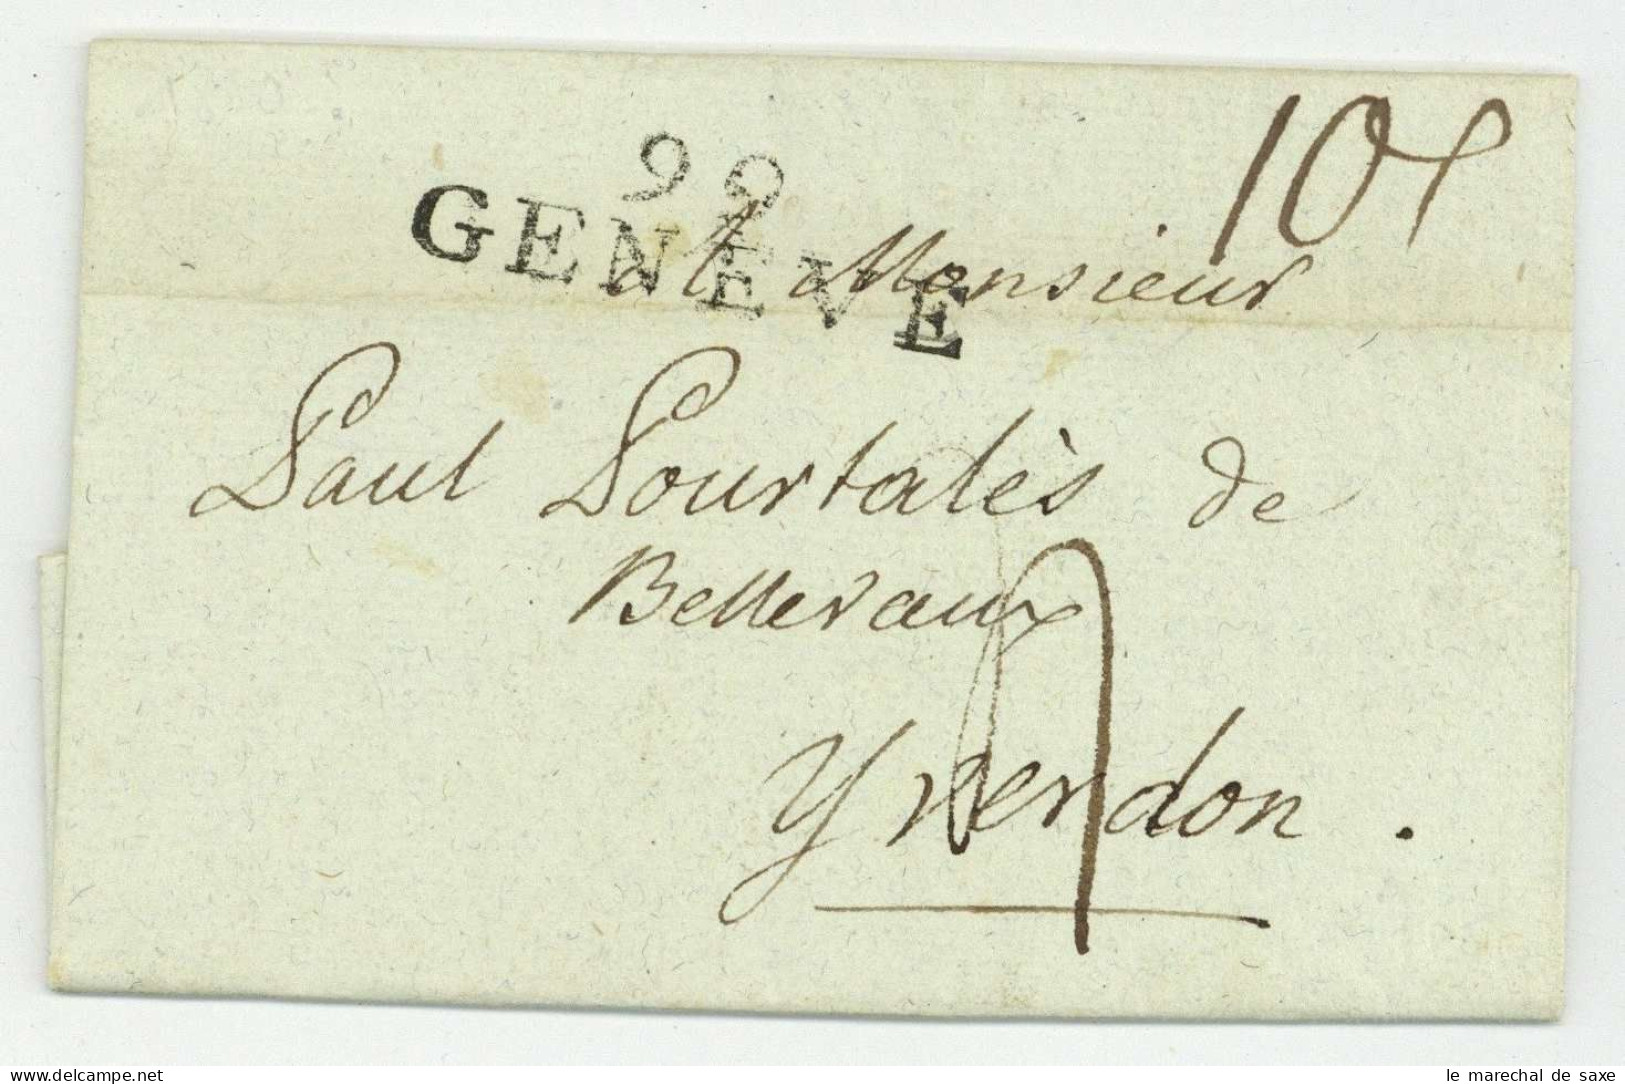 10
99
GENÈVE
A Monsieur
Paul Pourtalès de
Bellevaux
Yverdon.
delcampe.net
le marechal de saxe